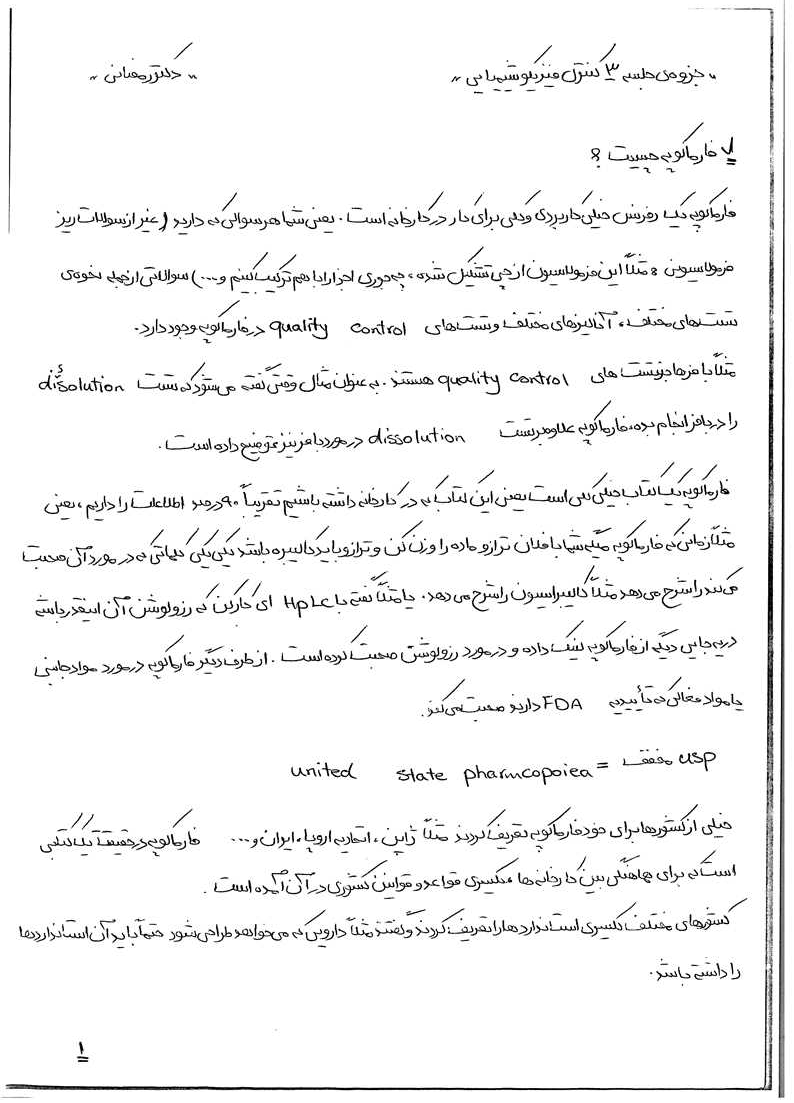 "جزوه‌ی جلسه ۳ کنترل فیزیکوشیمیایی" "دکتر رمضانی"
√ فارماکوپه چیست ؟
فارماکوپه یک رفرنس خیلی کاربردی و کلی برای کار در کارخانه است. یعنی شما هر سوالی که دارید (غیر از سوالات ریز
فرمولاسیونی ؛ مثلاً این فرمولاسیون از چی تشکیل شده، چه جوری اجزا را با هم ترکیب کنیم و...) سوالاتی از جمله نحوه‌ی
تست‌های مختلف، آنالیزهای مختلف و تست‌های quality control در فارماکوپه وجود دارد.
مثلاً بافرها جز تست های quality control هستند. به عنوان مثال وقتی گفته می‌شود که تست dissolution
را در بافر انجام بده، فارماکوپه علاوه بر تست dissolution در مورد بافر نیز توضیح داده است.
فارماکوپه یک کتاب خیلی کلی است یعنی این کتاب که در کارخانه داشته باشیم تقریباً ۹۰ درصد اطلاعات را داریم، یعنی
مثلاً زمانی که فارماکوپه میگه شما با فلان ترازو ماده را وزن کن و ترازو باید کالیبره باشد یکی یکی کلماتی که در مورد آن صحبت
می‌کند را شرح می‌دهد مثلاً کالیبراسیون را شرح می دهد. یا مثلاً گفته با HPLC ای کار کن که رزولوشن آن اینقدر باشه
در یه جایی دیگه از فارماکوپه لینک داده و در مورد رزولوشن صحبت کرده است. از طرف دیگر فارماکوپه در مورد مواد جانبی
یا مواد فعالی که تأییدیه FDA دارند صحبت می‌کند.
usp مخفف = united state pharmcopoiea
خیلی از کشورها برای خود فارماکوپه تعریف کردند مثلاً ژاپن، اتحادیه اروپا، ایران و... فارماکوپه در حقیقت یک کتابی
است که برای هماهنگی بین کارخانه ها، یکسری قواعد و قوانین کشوری در آن آمده است.
کشورهای مختلف یکسری استانداردها را تعریف کردند و گفتند مثلاً دارویی که می‌خواهد طراحی شود حتماً باید آن استانداردها
را داشته باشد.
۱